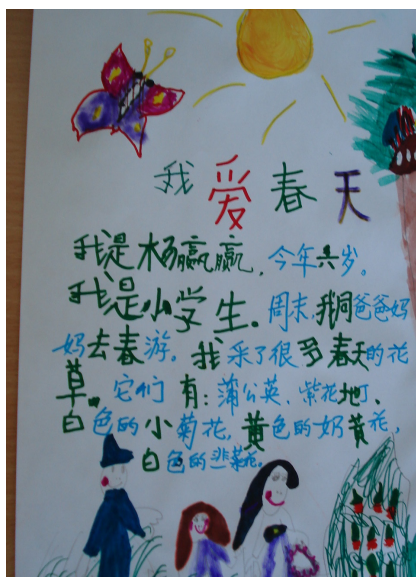 我爱春天
我是杨赢赢，今年六岁。
我是小学生。周末，我同爸爸妈
妈去春游。我采了很多春天的花
草。它们有：蒲公英、紫花地丁、
白色的小菊花，黄色的奶黄花，
白色的韭菜花。